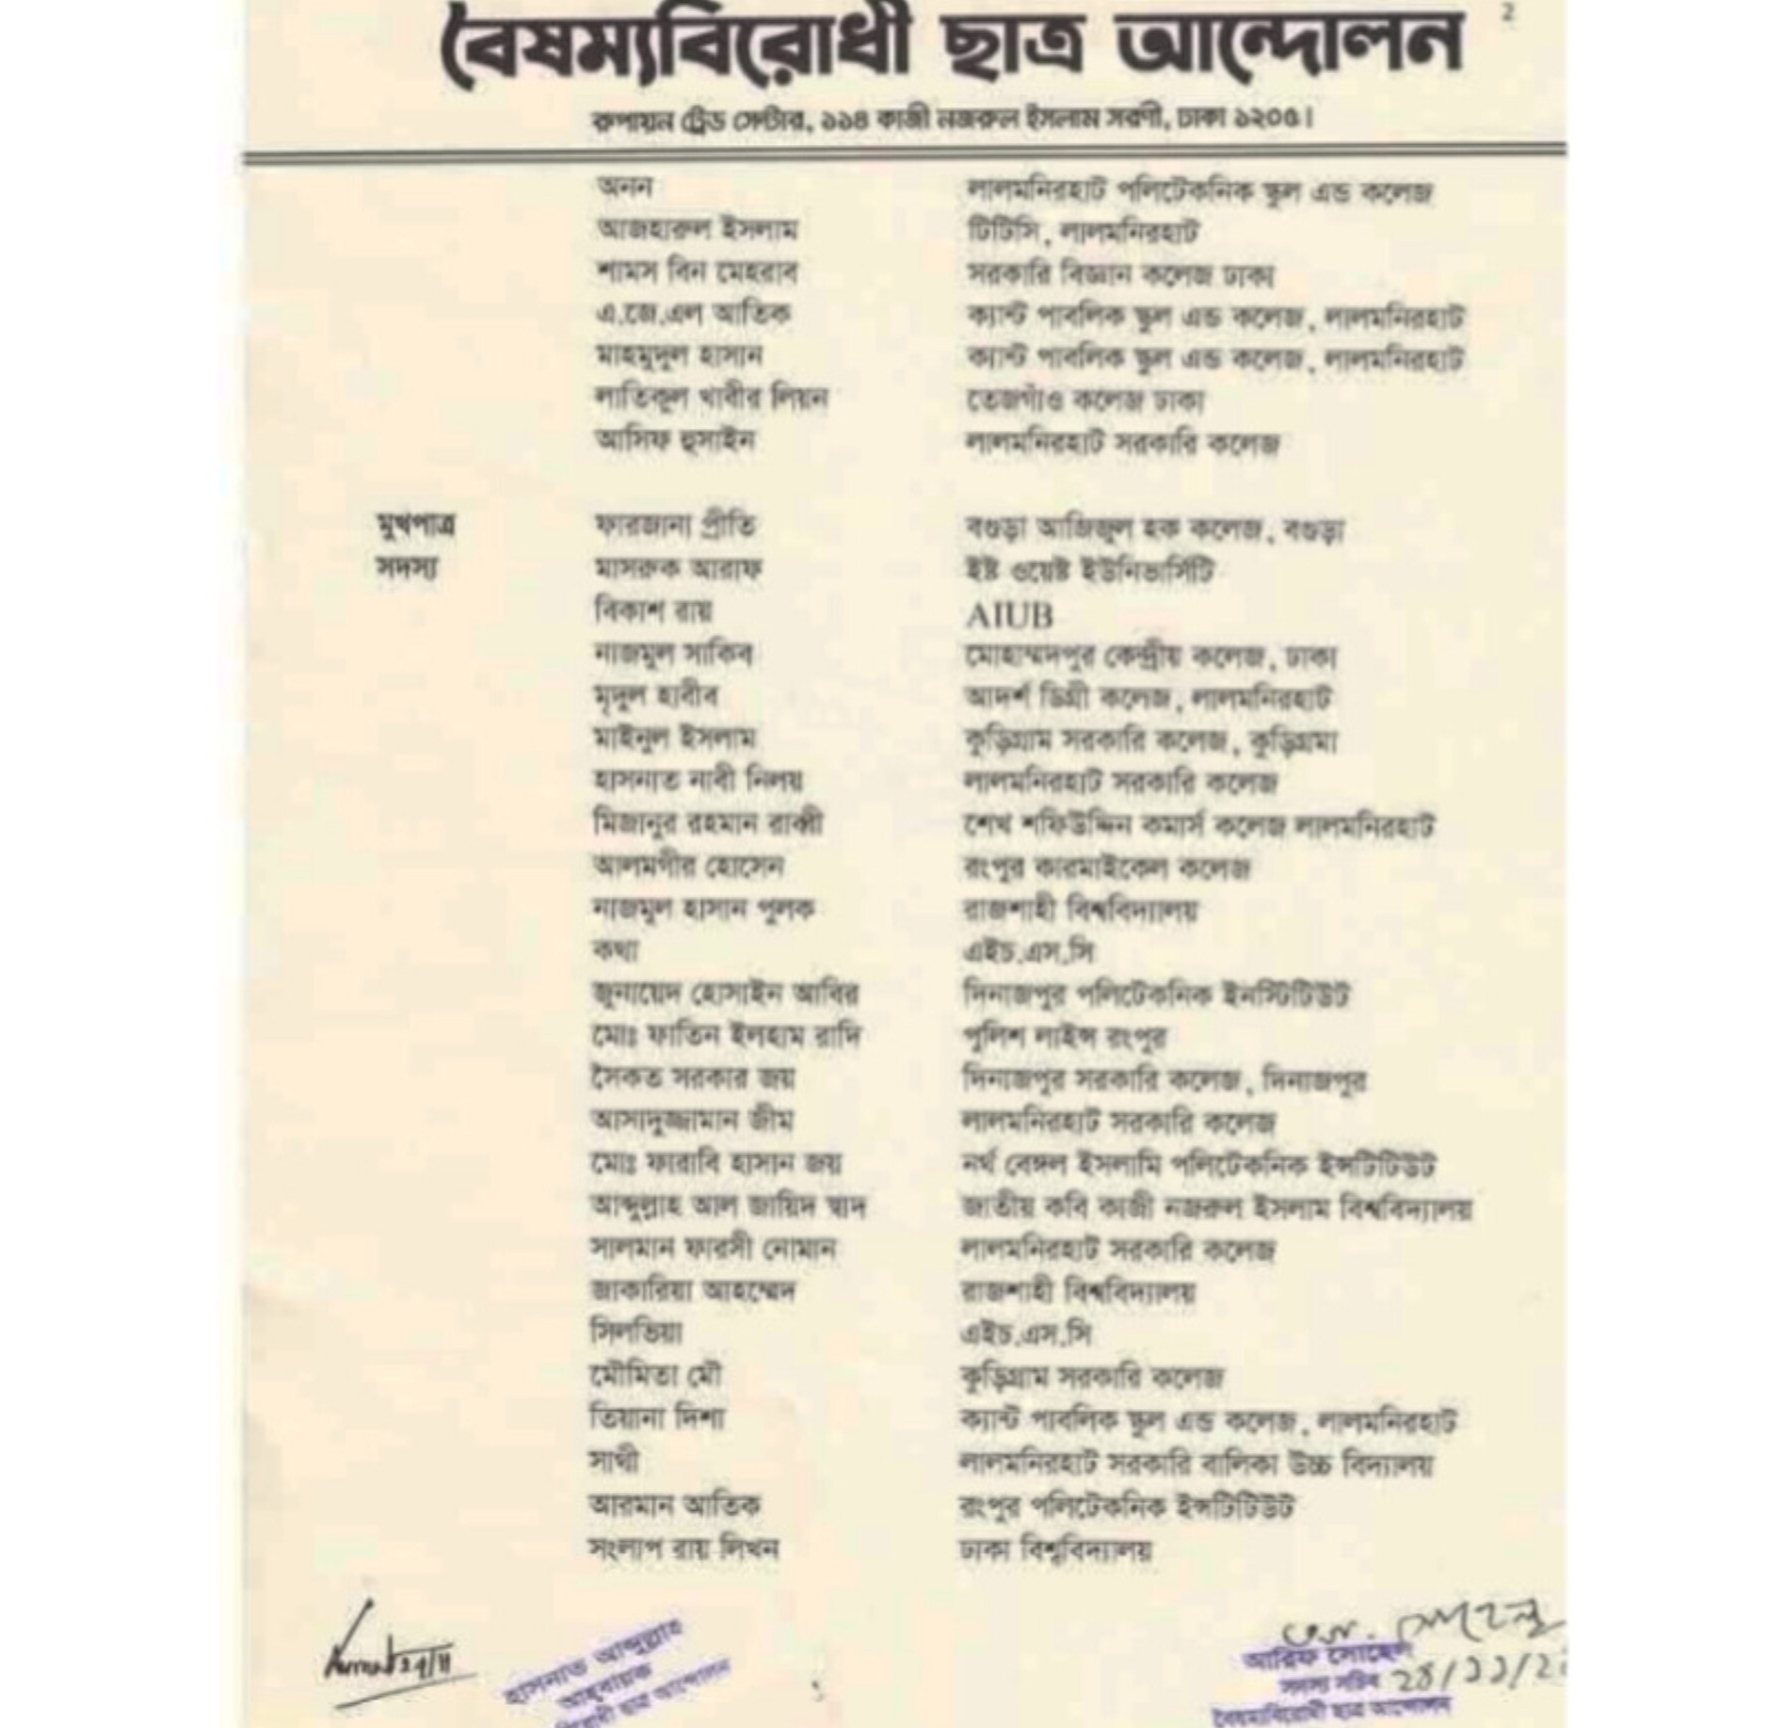 2
বৈষম্যবিরোধী ছাত্র আন্দোলন
রুপায়ন ট্রেড সেন্টার, ১১৪ কাজী নজরুল ইসলাম সরণী, ঢাকা ১২০৫।
অনন লালমনিরহাট পলিটেকনিক স্কুল এন্ড কলেজ
আজহারুল ইসলাম টিটিসি, লালমনিরহাট
শামস বিন মেহরাব সরকারি বিজ্ঞান কলেজ ঢাকা
এ.জে.এল আতিক ক্যান্ট পাবলিক স্কুল এন্ড কলেজ, লালমনিরহাট
মাহমুদুল হাসান ক্যান্ট পাবলিক স্কুল এন্ড কলেজ, লালমনিরহাট
লাতিকুল খাবীর লিয়ন তেজগাঁও কলেজ ঢাকা
আসিফ হুসাইন লালমনিরহাট সরকারি কলেজ
মুখপাত্র ফারজানা প্রীতি বগুড়া আজিজুল হক কলেজ, বগুড়া
সদস্য মাসরুক আরাফ ইষ্ট ওয়েষ্ট ইউনিভার্সিটি
বিকাশ রায় AIUB
নাজমুল সাকিব মোহাম্মদপুর কেন্দ্রীয় কলেজ, ঢাকা
মৃদুল হাবীব আদর্শ ডিগ্রী কলেজ, লালমনিরহাট
মাইনুল ইসলাম কুড়িগ্রাম সরকারি কলেজ, কুড়িগ্রমা
হাসনাত নাবী নিলয় লালমনিরহাট সরকারি কলেজ
মিজানুর রহমান রাব্বী শেখ শফিউদ্দিন কমার্স কলেজ লালমনিরহাট
আলমগীর হোসেন রংপুর কারমাইকেল কলেজ
নাজমুল হাসান পুলক রাজশাহী বিশ্ববিদ্যালয়
কথা এইচ.এস.সি
জুনায়েদ হোসাইন আবির দিনাজপুর পলিটেকনিক ইনস্টিটিউট
মোঃ ফাতিন ইলহাম রাদি পুলিশ লাইন্স রংপুর
সৈকত সরকার জয় দিনাজপুর সরকারি কলেজ, দিনাজপুর
আসাদুজ্জামান জীম লালমনিরহাট সরকারি কলেজ
মোঃ ফারাবি হাসান জয় নর্থ বেঙ্গল ইসলামি পলিটেকনিক ইন্সটিটিউট
আব্দুল্লাহ আল জায়িদ স্বাদ জাতীয় কবি কাজী নজরুল ইসলাম বিশ্ববিদ্যালয়
সালমান ফারসী নোমান লালমনিরহাট সরকারি কলেজ
জাকারিয়া আহম্মেদ রাজশাহী বিশ্ববিদ্যালয়
সিলভিয়া এইচ.এস.সি
মৌমিতা মৌ কুড়িগ্রাম সরকারি কলেজ
তিয়ানা দিশা ক্যান্ট পাবলিক স্কুল এন্ড কলেজ, লালমনিরহাট
সাথী লালমনিরহাট সরকারি বালিকা উচ্চ বিদ্যালয়
আরমান আতিক রংপুর পলিটেকনিক ইন্সটিটিউট
সংলাপ রায় লিখন ঢাকা বিশ্ববিদ্যালয়
হাসনাত আব্দুল্লাহ
আহ্বায়ক
ছাত্র আন্দোলন
আরিফ সোহেল
সদস্য সচিব
বৈষম্যবিরোধী ছাত্র আন্দোলন